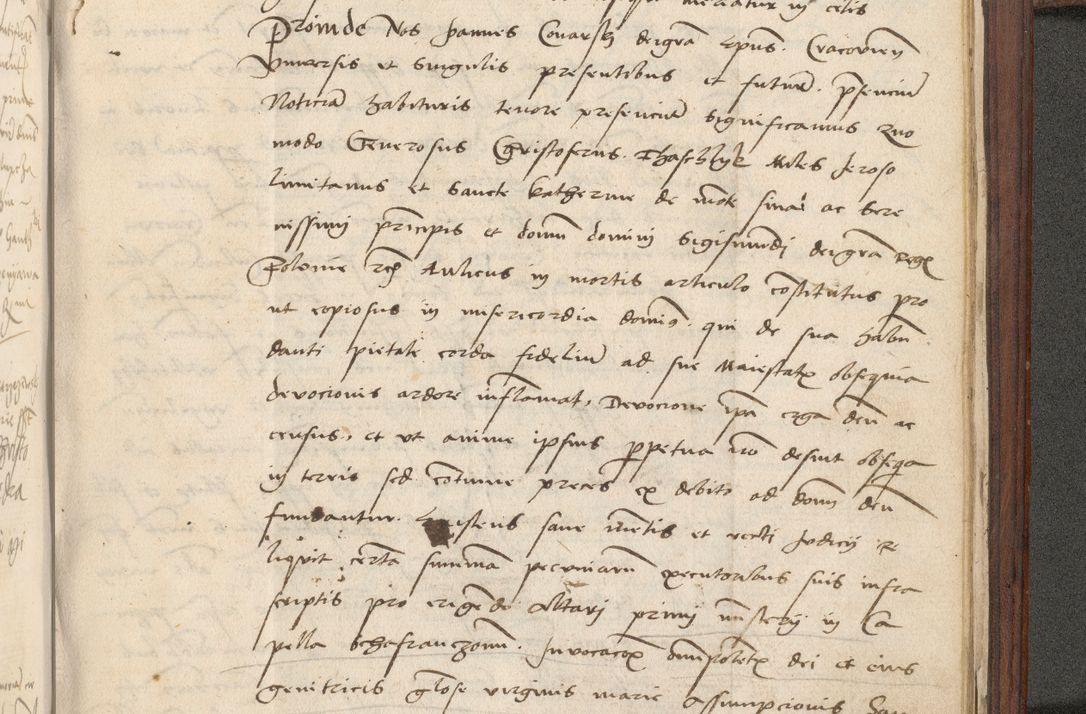 in celis
Proinde Nos Joannes Conarsky dei gra Epus. Cracovien
Vniversis et Singulis presentibus et futur. psenciu
Noticia habituris tenore presenciu significamus quo
modo Generosus Cristoferus. Thaschyk Miles Jeroso
limitanus et Sancte Katherine de mote sinai ac Sere
nissimi principis et domi domini Sigismundi dei gra Reg
Polonie Aulicus in mortis articulo costitutus pro
ut copiosus in misericordia domin. qui de sua habun
danti pietate corda fideliu ad sue Maiestat obsequia
devocionis ardore inflamat, Devocione ipa erga deu ac
census, et ut anime ipsius ppetua no desint obseqa
in terris sed cotinue preces ex debito ad domi deu
fundantur. Existens sane metis et recti Judicij re
liquit certa summa pecuniaru executoribus suis infra
scriptis pro erigedo Altari primi misterij in Ca
pella Schafranczom. Invocacoe omipotet dei et eius
genitricis glose virginis marie Assumpcionis